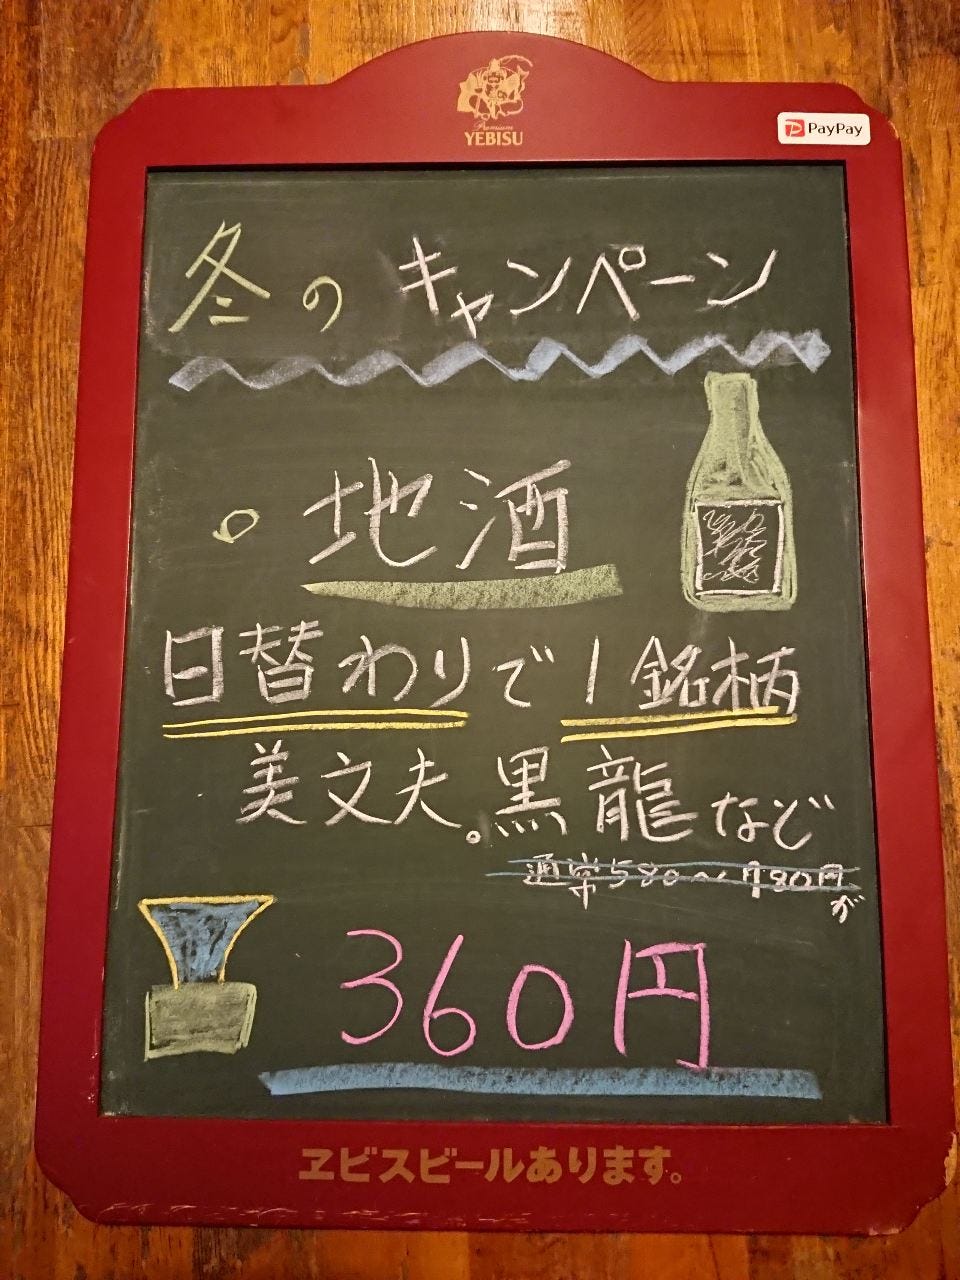 Premium
YEBISU
PayPay
冬のキャンペーン
地酒
日替わりで1銘柄
美文夫。黒龍など
通常580〜780円が
360円
ヱビスビールあります。